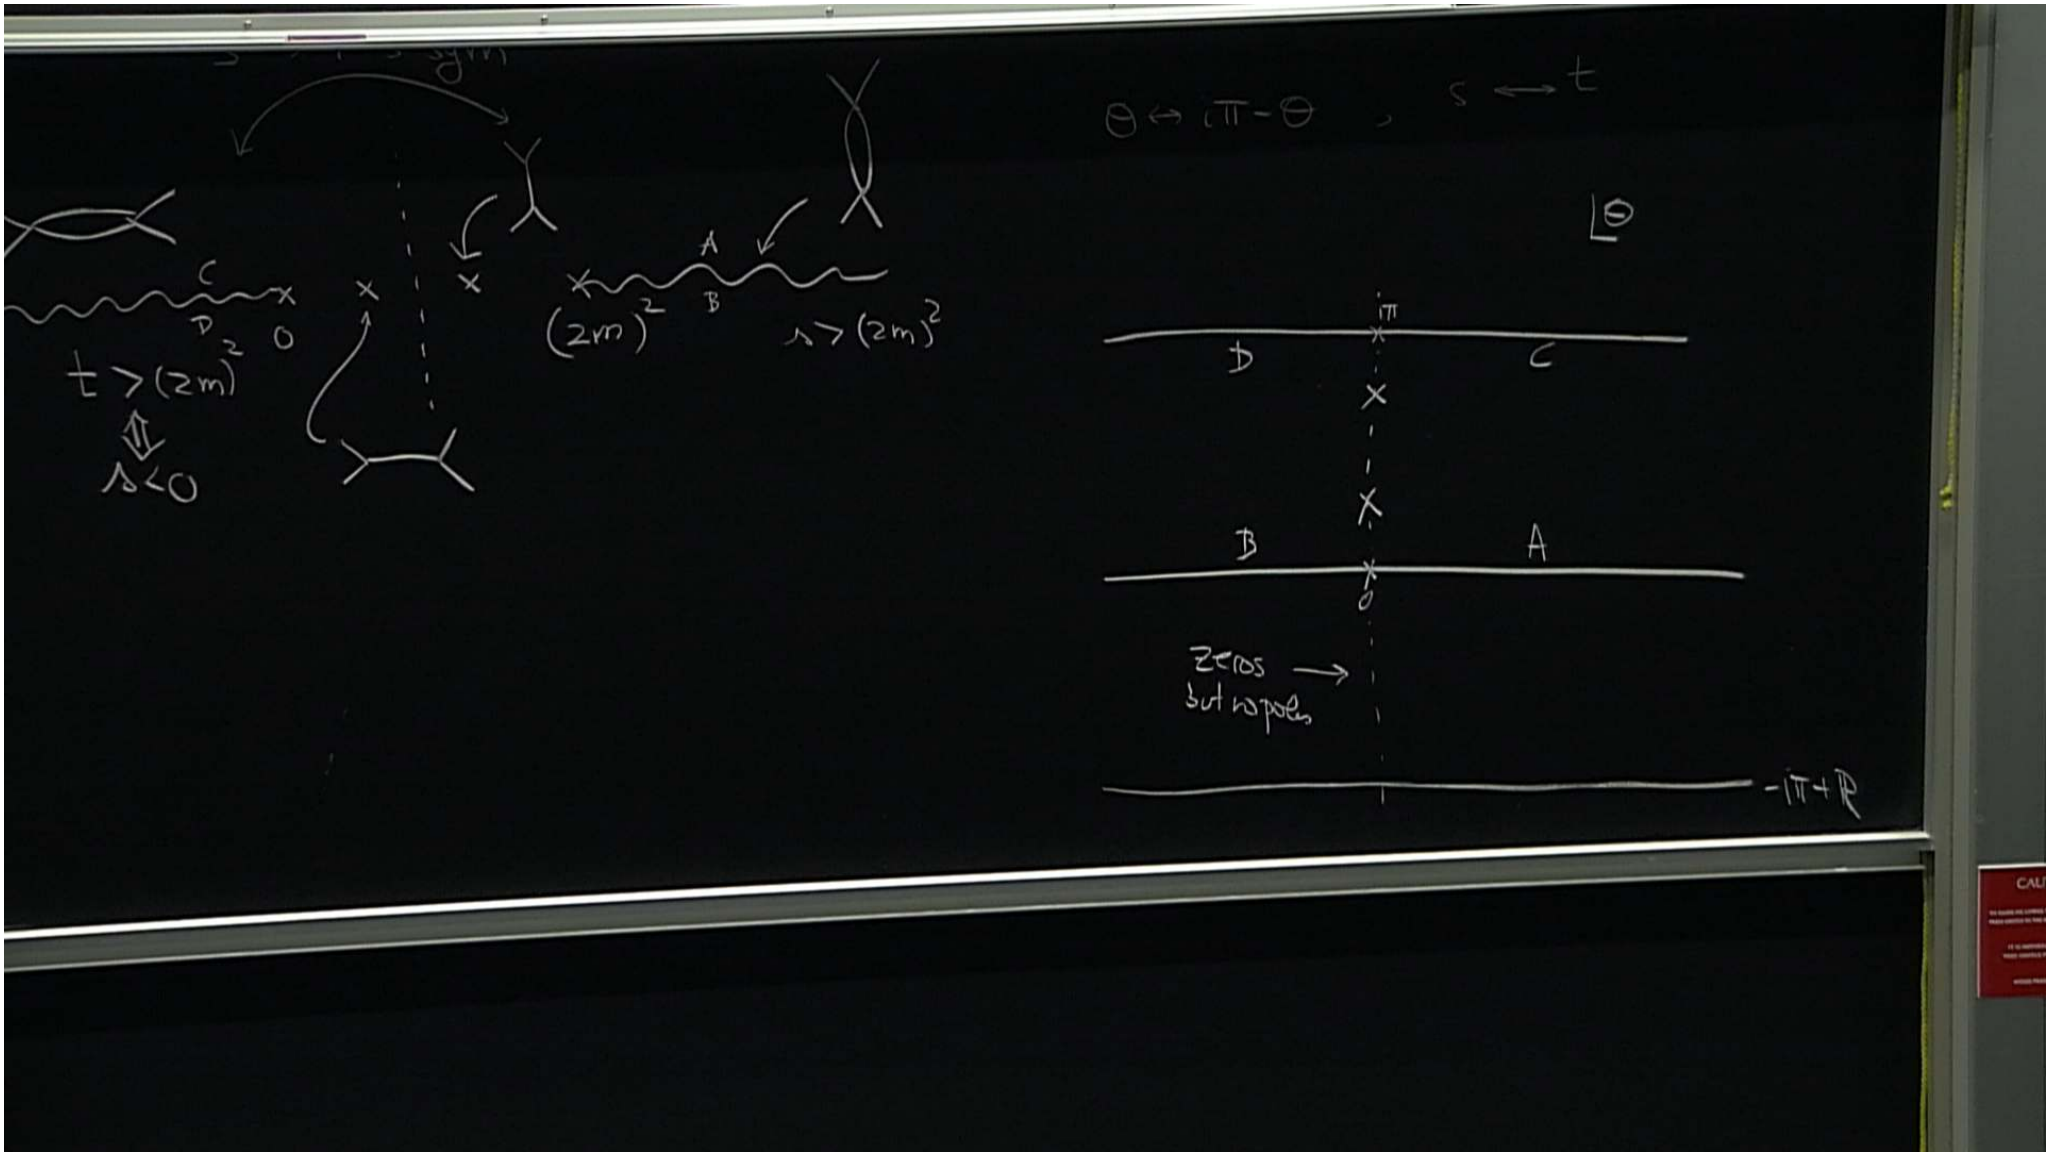 sym
θ ↔ iπ - θ , s ↔ t
θ
C
D
0
A
B
(2m)²
s > (2m)²
t > (2m)²
⇕
s < 0
iπ
D
C
B
A
0
zeros →
but no poles
-iπ + ℝ
CAU